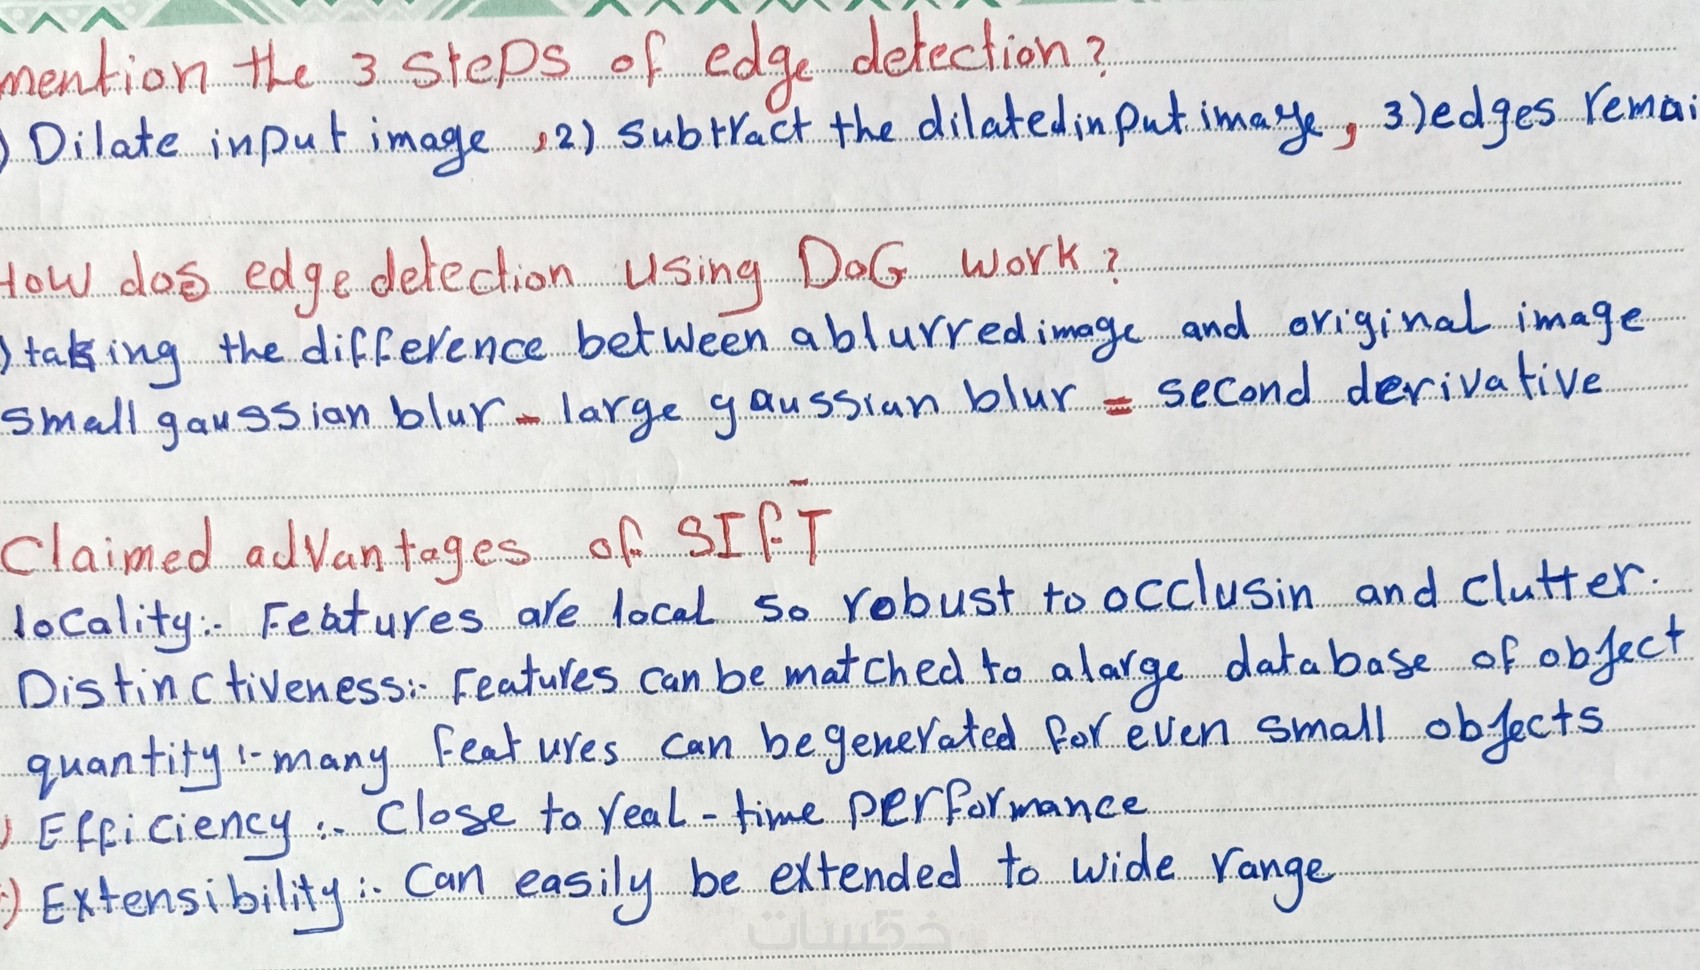 mention the 3 steps of edge detection?
) Dilate input image , 2) subtract the dilated input image , 3) edges remai
How dos edge detection using DoG work ?
) taking the difference between a blurred image and original image
small gaussian blur - large gaussian blur = second derivative
Claimed advantages of SIFT
locality:- Features are local so robust to occlusin and clutter.
Distinctiveness:- Features can be matched to a large database of object
quantity :- many features can be generated for even small objects
) Efficiency :- Close to real-time performance
) Extensibility :- Can easily be extended to wide range
خمسات